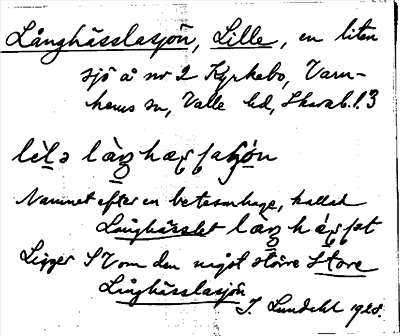 Långhässlasjön, Lille, en liten
sjö å nr 2 Kyrkebo, Varn-
hems sn, Valle hd, Skarab. l.
Namnet efter en betesmhage, kallad
Långhässlet
Ligger SV om den något större Store
Långhässlasjön
J. Lundahl 1928.